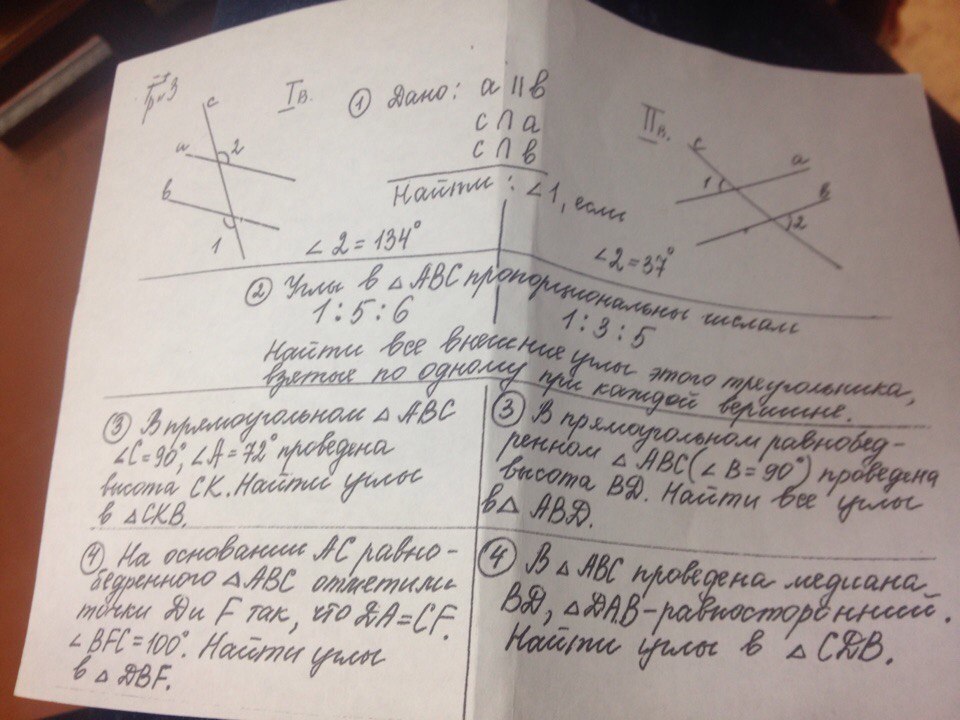 I в.
① Дано: a || b
c ∩ a
c ∩ b
Найти: ∠1, если
c
a
2
b
1
∠2 = 134°
II в.
c
a
1
b
2
∠2 = 37°
② Углы в △ABC пропорциональны числам
1 : 5 : 6
1 : 3 : 5
Найти все внешние углы этого треугольника,
взятые по одному при каждой вершине.
③ В прямоугольном △ ABC
∠C = 90°, ∠A = 72° проведена
высота CK. Найти углы
в △CKB.
③ В прямоугольном равнобед-
ренном △ ABC (∠ B = 90°) проведена
высота BD. Найти все углы
в △ ABD.
④ На основании AC равно-
бедренного △ABC отметили
точки D и F так, что DA = CF.
∠ BFC = 100°. Найти углы
в △ DBF.
④ В △ ABC проведена медиана
BD, △DAB - равносторонний.
Найти углы в △ CDB.